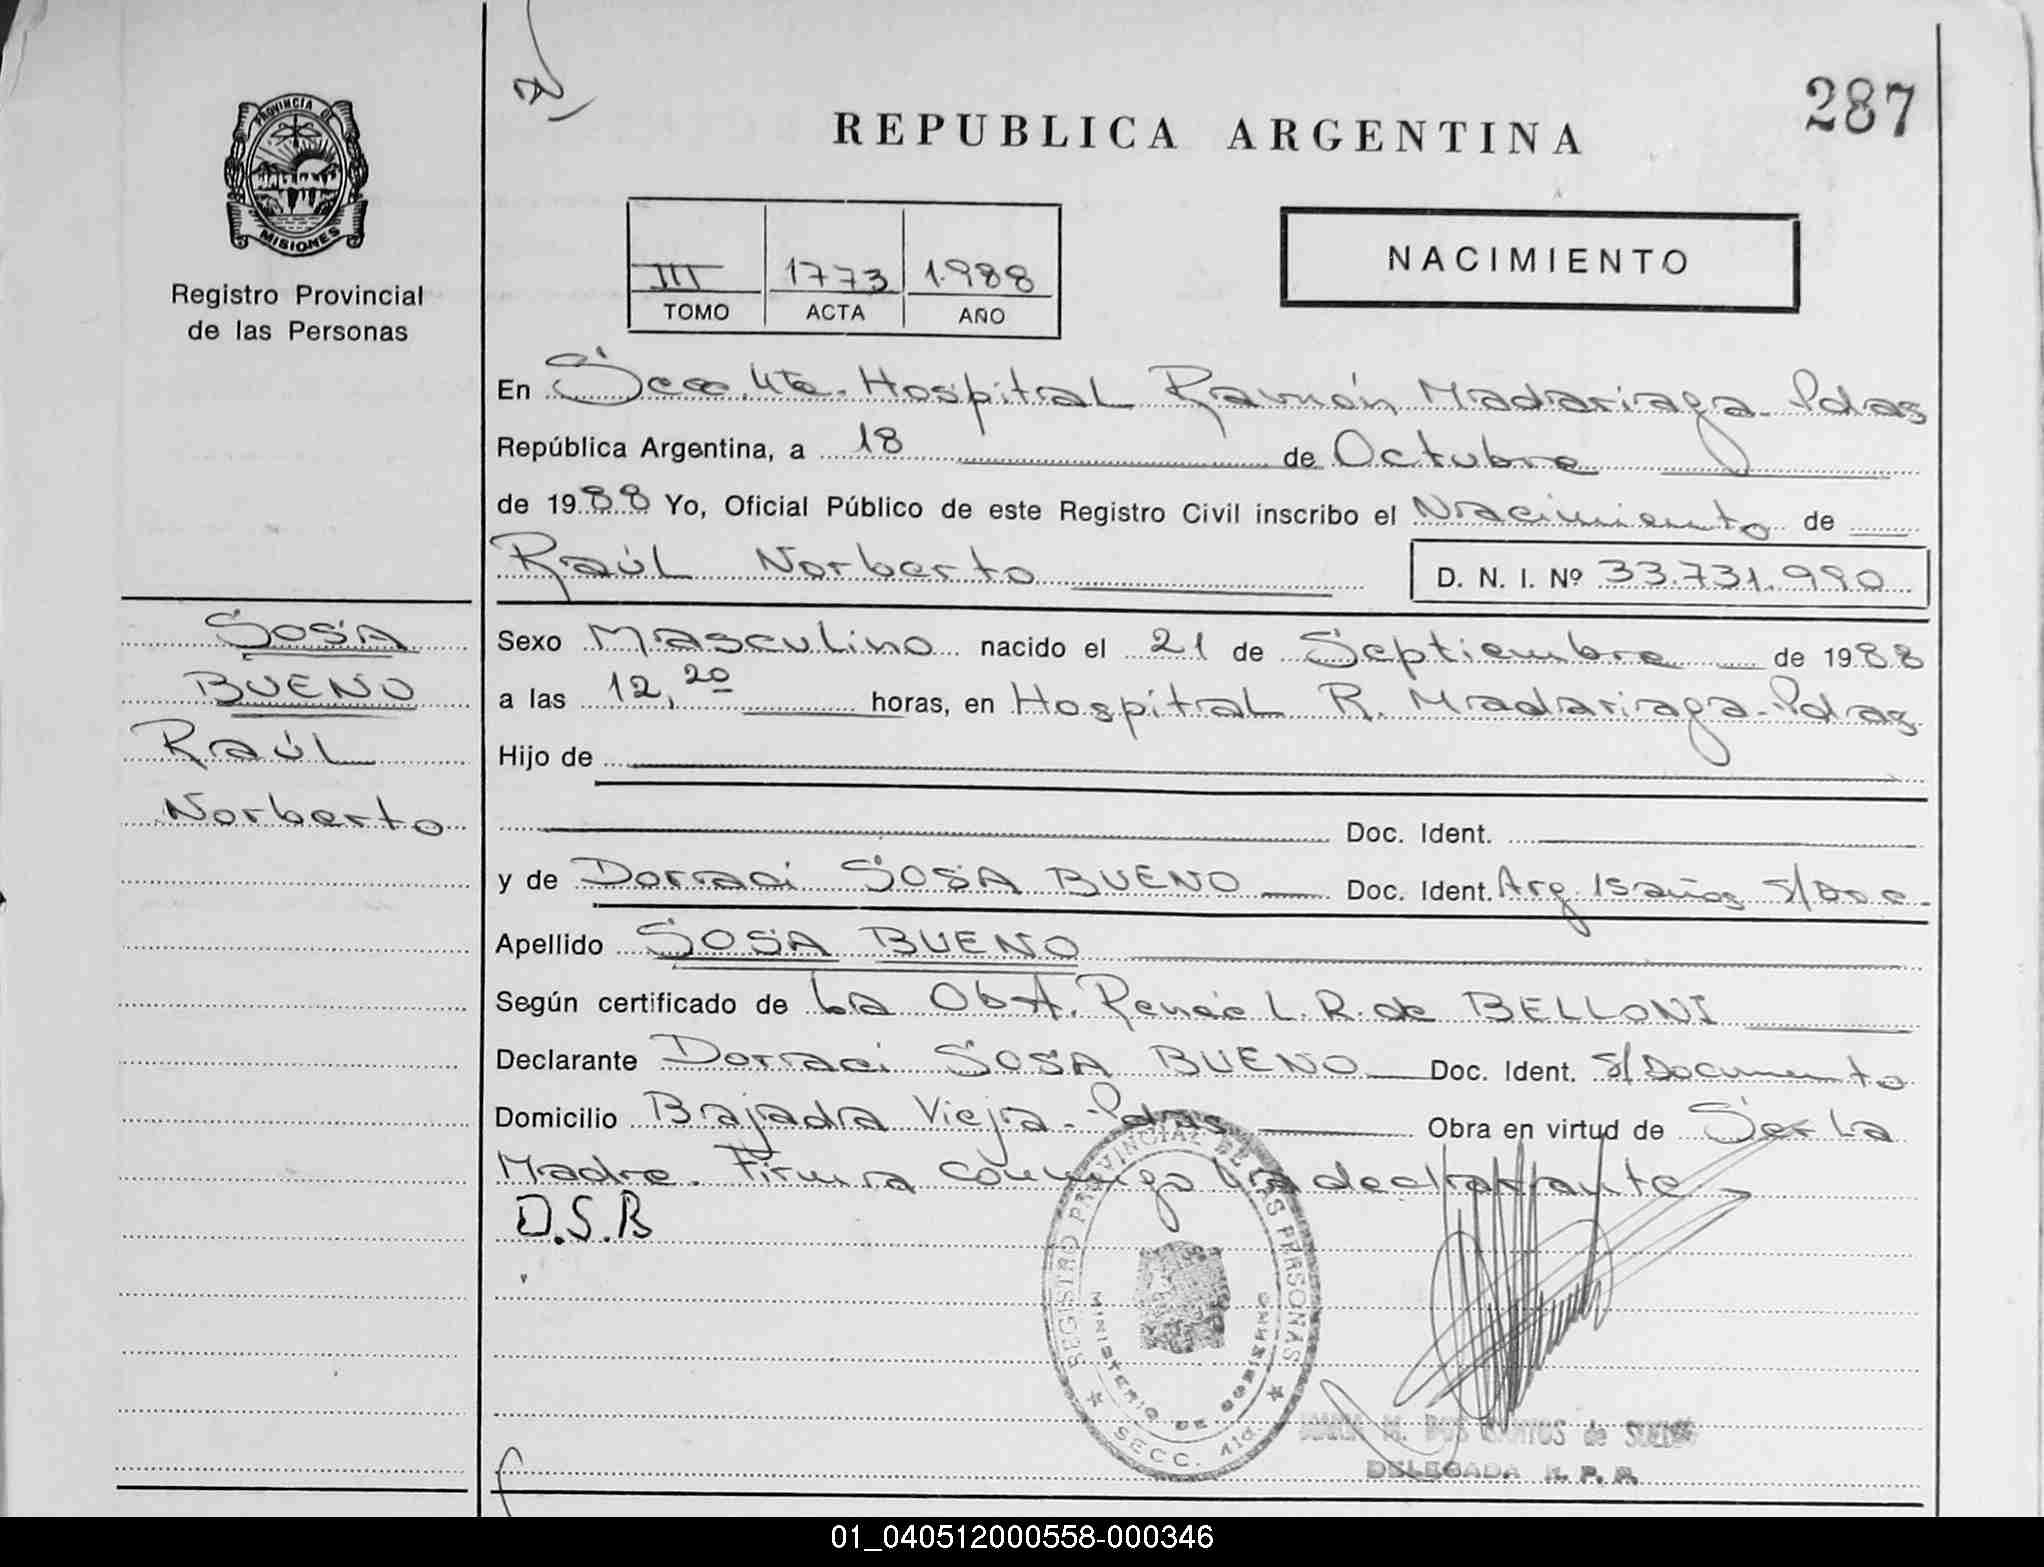 287
REPUBLICA ARGENTINA
PROVINCIA DE
MISIONES
Registro Provincial
de las Personas
III 1773 1988
TOMO ACTA AÑO
NACIMIENTO
En Secc. 4ta. Hospital Ramón Madariaga - Pdas
República Argentina, a 18 de Octubre
de 1988 Yo, Oficial Público de este Registro Civil inscribo el Nacimiento de
Raúl Norberto D. N. I. Nº 33.731.990
SOSA
BUENO
Raúl
Norberto
Sexo Masculino nacido el 21 de Septiembre de 1988
a las 12,20 horas, en Hospital R. Madariaga - Pdas.
Hijo de
Doc. Ident.
y de Dorraci SOSA BUENO Doc. Ident. Arg. 15 años S/Doc.
Apellido SOSA BUENO
Según certificado de La Obt. Reneé L. R. de BELLONI
Declarante Dorraci SOSA BUENO Doc. Ident. S/Documento
Domicilio Bajada Vieja - Pdas Obra en virtud de Ser La
Madre. Firma conmigo La declarante
D.S.B
REGISTRO PROVINCIAL DE LAS PERSONAS
MINISTERIO DE GOBIERNO
SECC. 4ta.
M. DOS SANTOS de
DELEGADA R. P. P.
01_040512000558-000346